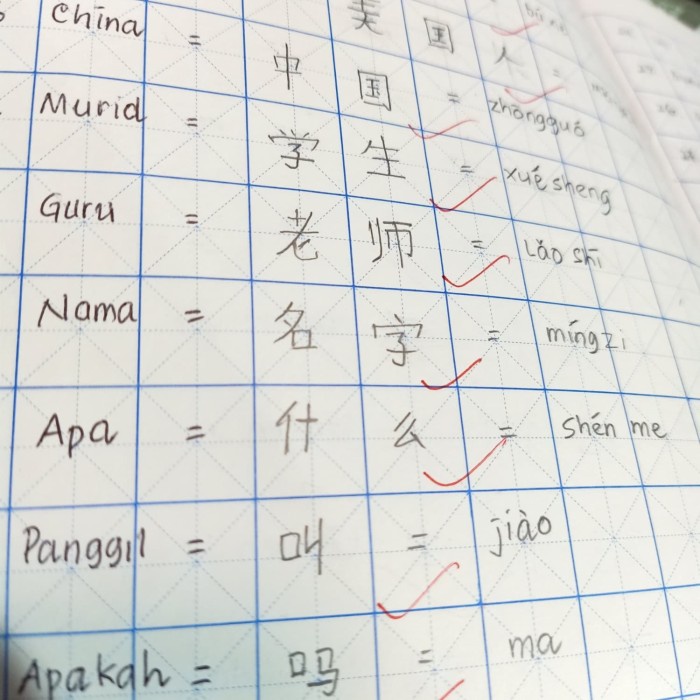 美国人 =
China = 中国 = zhōngguó
Murid = 学生 = xué sheng
Guru = 老师 = Lǎo shī
Nama = 名字 = míng zi
Apa = 什么 = shén me
Panggil = 叫 = jiào
Apakah = 吗 = ma